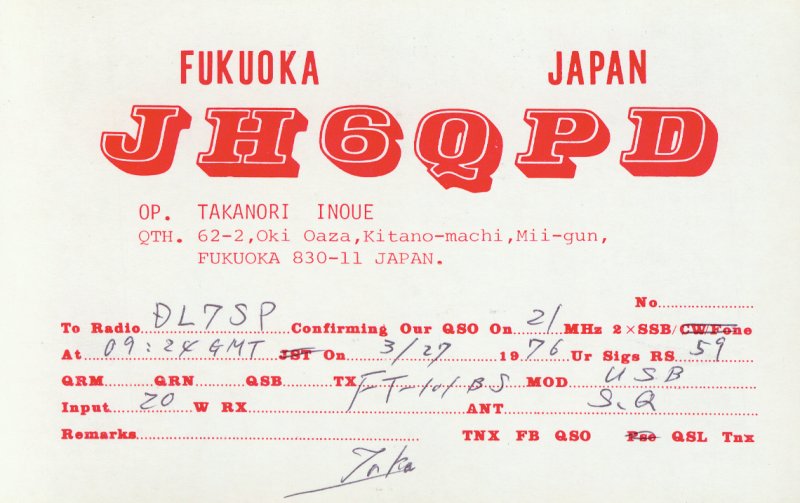 FUKUOKA JAPAN
JH6QPD
OP. TAKANORI INOUE
QTH. 62-2,Oki Oaza,Kitano-machi,Mii-gun,
FUKUOKA 830-11 JAPAN.
No.
To Radio DL7SP Confirming Our QSO On 21 MHz 2×SSB/CWFone
At 09:24 GMT JST On 3/27 1976 Ur Sigs RS 59
QRM QRN QSB TX FT-101BS MOD USB
Input 20 W RX ANT S.Q
Remarks TNX FB QSO Pse QSL Tnx
Taka